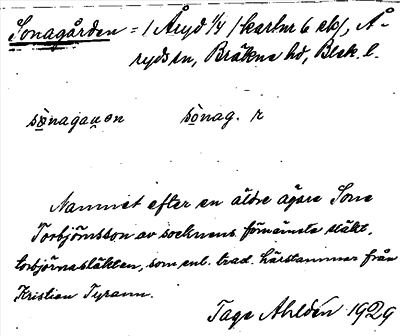 Sonagården = 1 Åryd 1/4 (kartnr 6 ekbl), Å-
ryds sn, Bräkne hd, Blek. l.
sònagaṇen sònag. r
Namnet efter en äldre ägare Sone
Torbjörnsson av socknens förnämsta släkt,
torbjörnasläkten, som enl. trad. härstammar från
Kristian Tyrann.
Tage Ahldén 1929